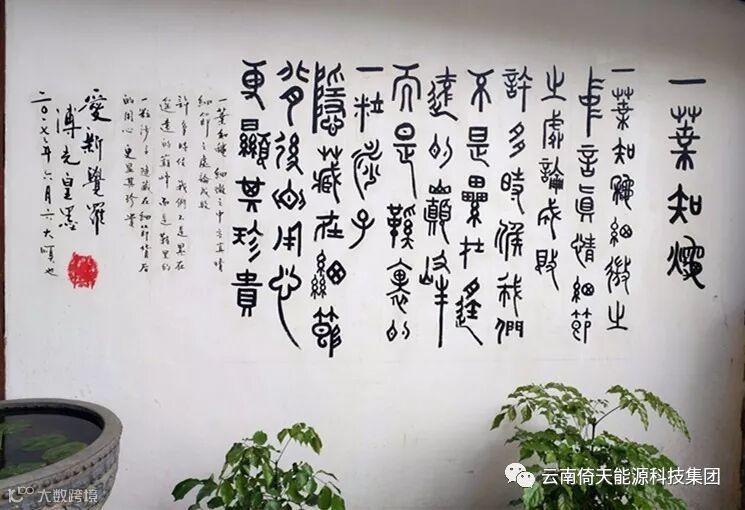 一葉知龝
一葉知龝細微之
中言真情細節
之處論成敗
許多時候我們
不是累在遙
遠的巔峰
而是鞋裏的
一粒沙子
隱藏在細節
背後的用心
更顯其珍貴
一葉知龝 細微之中言真情
細節之處論成敗
許多時候 我們不是累在
遙遠的巔峰 而是鞋里的
一粒沙子 隱藏在細節背后
的用心 更显其珍贵
愛新覺羅
二〇一七年六月六大順也
云南倚天能源科技集团
大数跨境